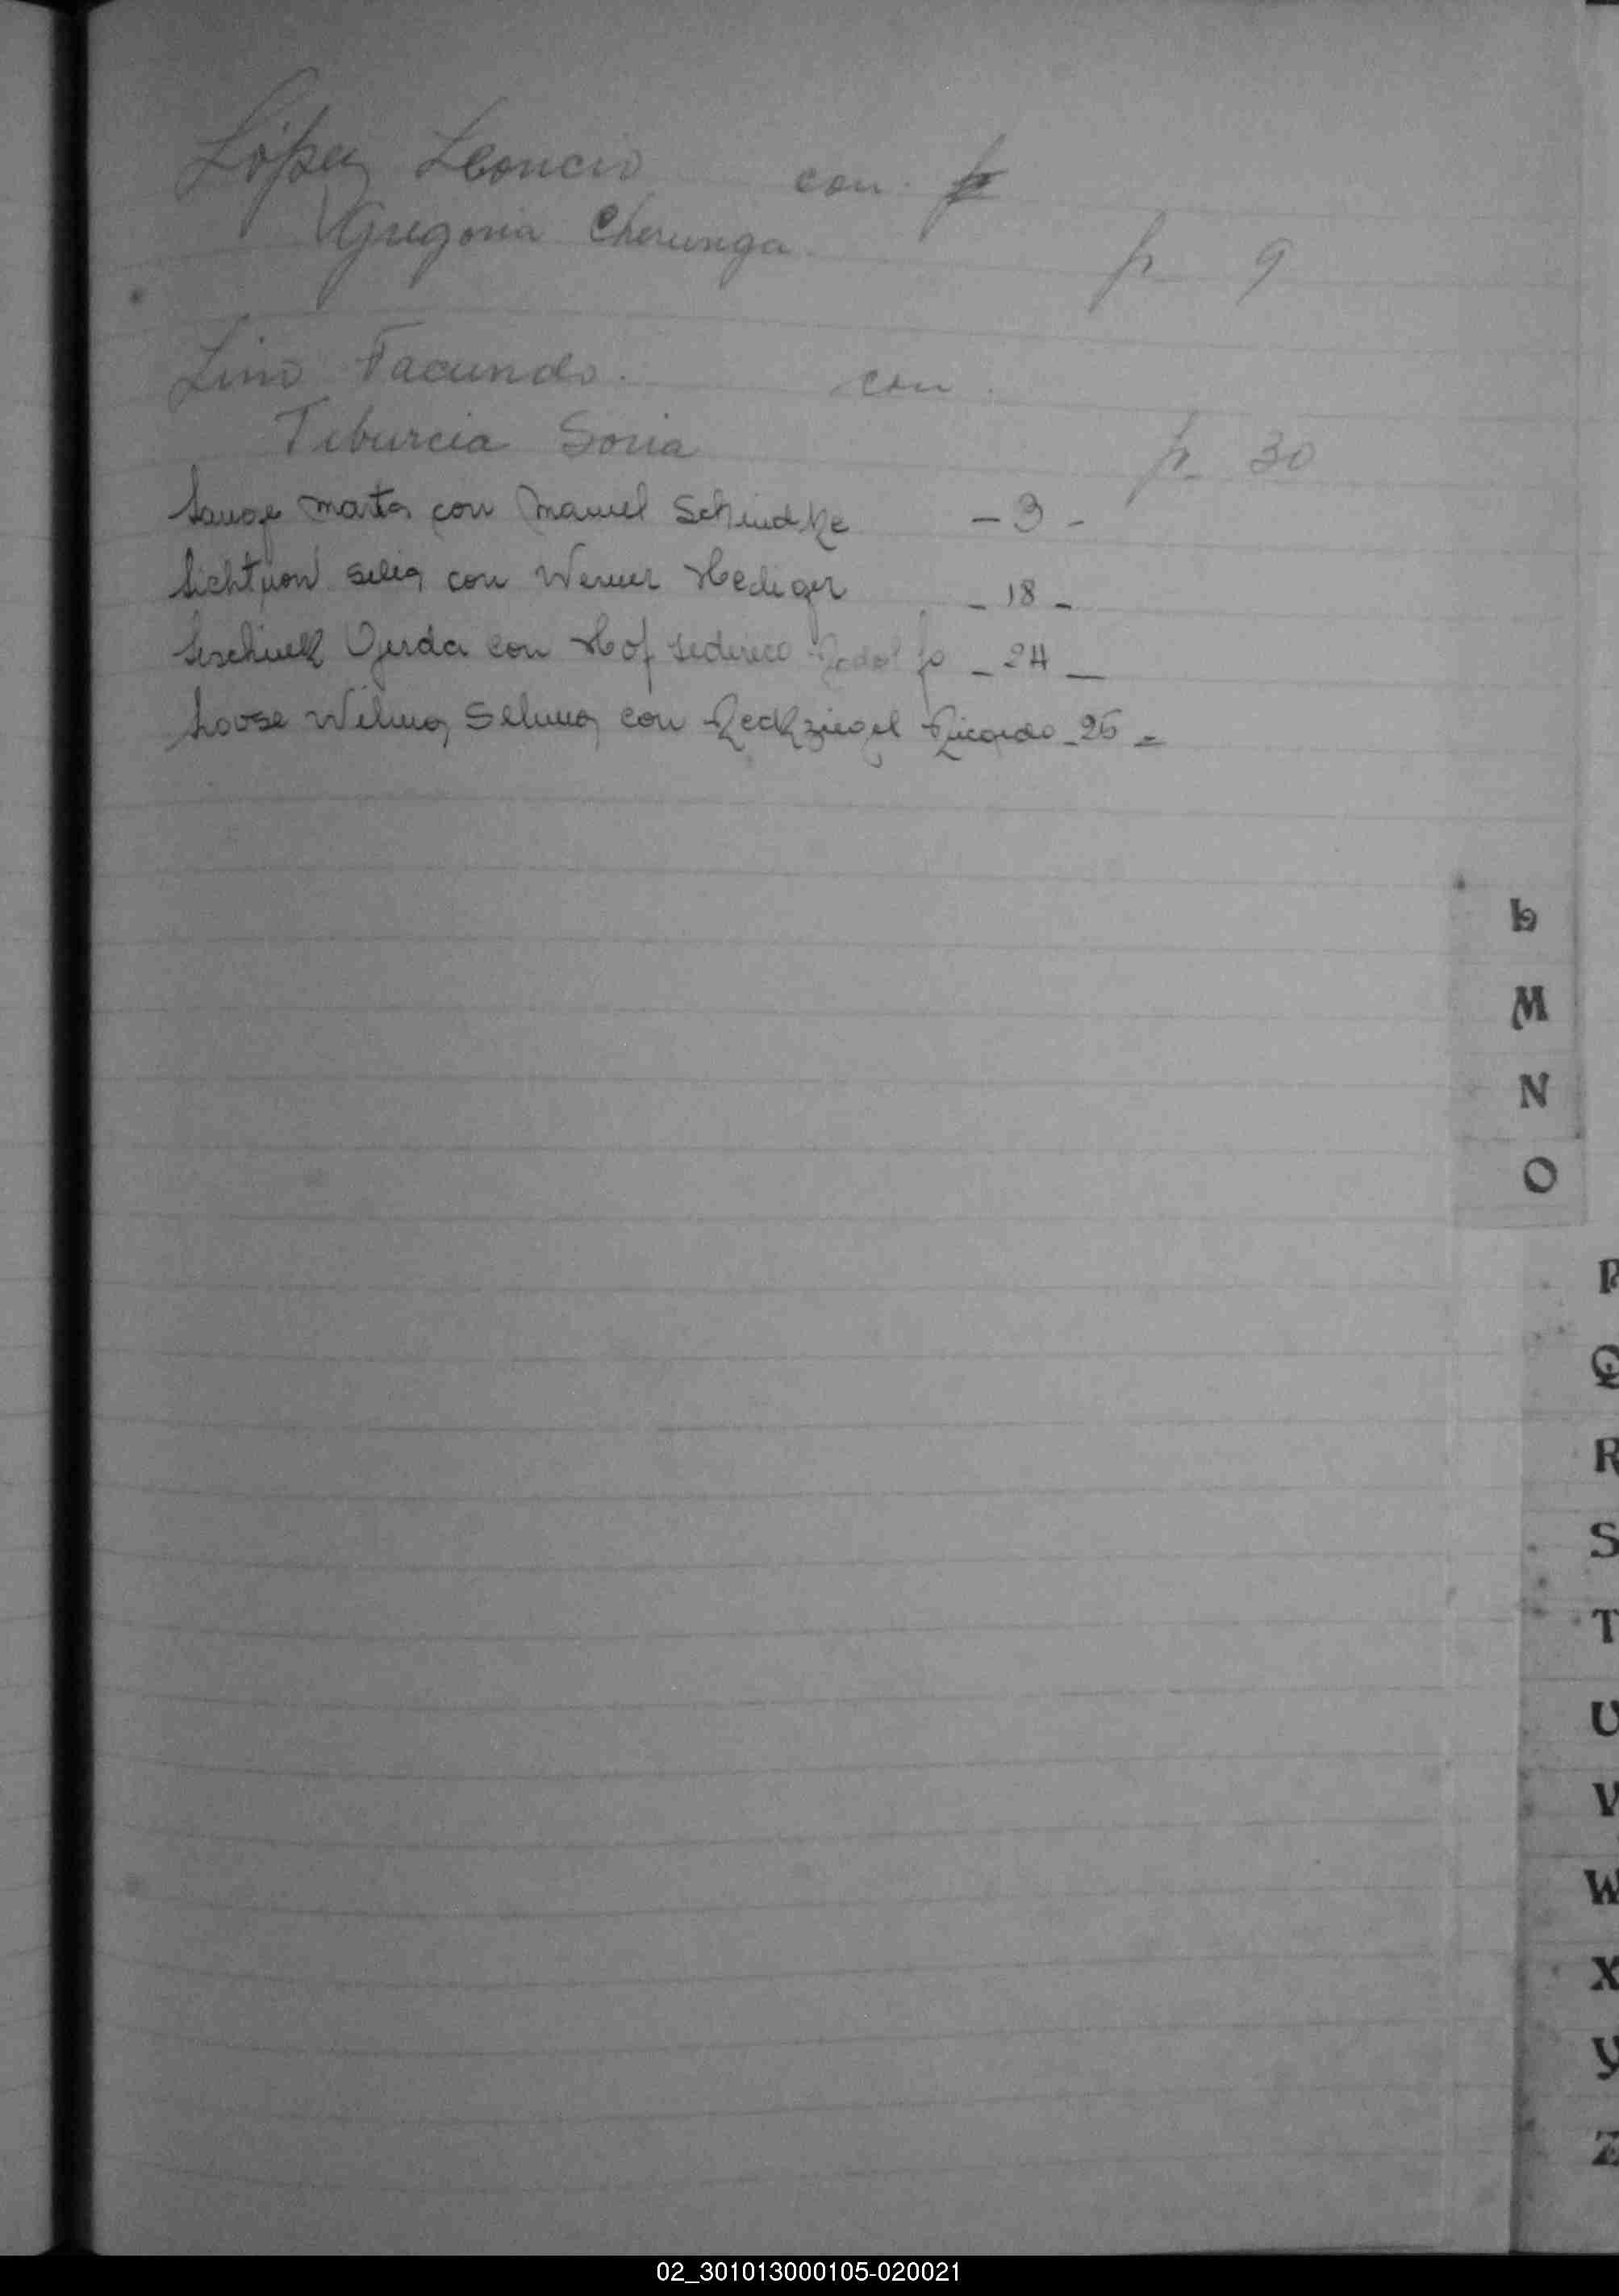 López Leoncio con
Gregoria Cherunga
p 9
Lino Facundo. con
Tiburcia Soria
p 30
Lange Marta con Manuel Schindke - 3 -
Lichtyon Selia con Werner Hediger - 18 -
Leschuek Gerda con Hof Federico Rodolfo - 24 -
Loose Wilma Selma con Reckziegel Ricardo - 26 -
L
M
N
O
P
Q
R
S
T
U
V
W
X
Y
Z
02_301013000105-020021